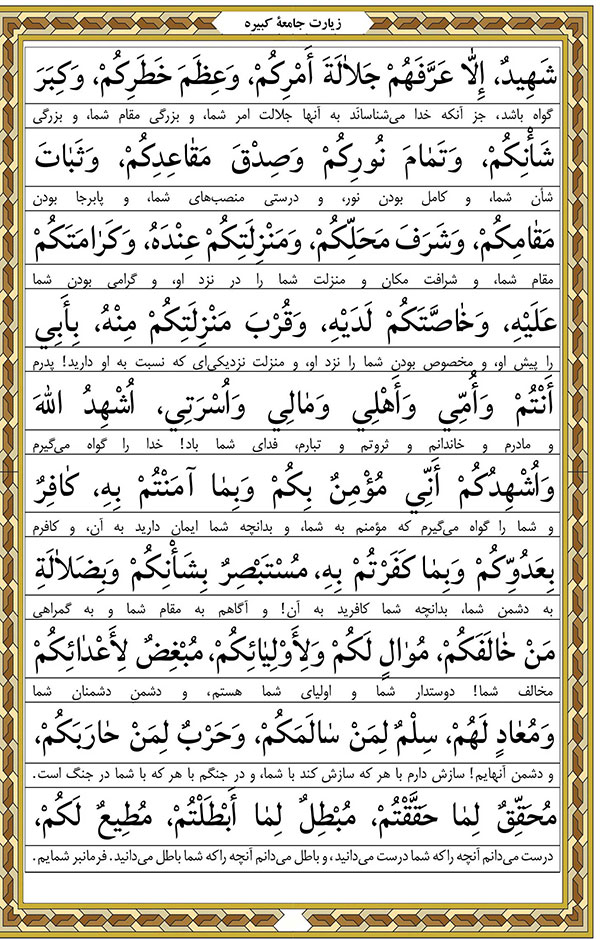 زیارت جامعهٔ کبیره
شَهِيدٌ، إِلّٰا عَرَّفَهُمْ جَلاٰلَةَ أَمْرِكُمْ، وَعِظَمَ خَطَرِكُمْ، وَكِبَرَ
گواه باشد، جز آنکه خدا می‌شناساند به آنها جلالت امر شما، و بزرگی مقام شما، و بزرگی
شَأْنِكُمْ، وَتَمٰامَ نُورِكُمْ وَصِدْقَ مَقٰاعِدِكُمْ، وَثَبٰاتَ
شأن شما، و کامل بودن نور، و درستی منصب‌های شما، و پابرجا بودن
مَقٰامِكُمْ، وَشَرَفَ مَحَلِّكُمْ، وَمَنْزِلَتِكُمْ عِنْدَهُ، وَكَرٰامَتَكُمْ
مقام شما، و شرافت مکان و منزلت شما را در نزد او، و گرامی بودن شما
عَلَيْهِ، وَخٰاصَّتَكُمْ لَدَيْهِ، وَقُرْبَ مَنْزِلَتِكُمْ مِنْهُ، بِأَبِي
را پیش او، و مخصوص بودن شما را نزد او، و منزلت نزدیکی‌ای که نسبت به او دارید! پدرم
أَنْتُمْ وَأُمِّي وَأَهْلِي وَمٰالِي وَاُسْرَتِي، اُشْهِدُ اللهَ
و مادرم و خاندانم و ثروتم و تبارم، فدای شما باد! خدا را گواه می‌گیرم
وَاُشْهِدُكُمْ أَنِّي مُؤْمِنٌ بِكُمْ وَبِمٰا آمَنْتُمْ بِهِ، كٰافِرٌ
و شما را گواه می‌گیرم که مؤمنم به شما، و بدانچه شما ایمان دارید به آن، و کافرم
بِعَدُوِّكُمْ وَبِمٰا كَفَرْتُمْ بِهِ، مُسْتَبْصِرٌ بِشَأْنِكُمْ وَبِضَلاٰلَةِ
به دشمن شما، بدانچه شما کافرید به آن! و آگاهم به مقام شما و به گمراهی
مَنْ خٰالَفَكُمْ، مُوٰالٍ لَكُمْ وَلِأَوْلِيٰائِكُمْ، مُبْغِضٌ لِأَعْدٰائِكُمْ
مخالف شما! دوستدار شما و اولیای شما هستم، و دشمن دشمنان شما
وَمُعٰادٍ لَهُمْ، سِلْمٌ لِمَنْ سٰالَمَكُمْ، وَحَرْبٌ لِمَنْ حٰارَبَكُمْ،
و دشمن آنهایم! سازش دارم با هر که سازش کند با شما، و در جنگم با هر که با شما در جنگ است.
مُحَقِّقٌ لِمٰا حَقَّقْتُمْ، مُبْطِلٌ لِمٰا أَبْطَلْتُمْ، مُطِيعٌ لَكُمْ،
درست می‌دانم آنچه را که شما درست می‌دانید، و باطل می‌دانم آنچه را که شما باطل می‌دانید. فرمانبر شمایم.